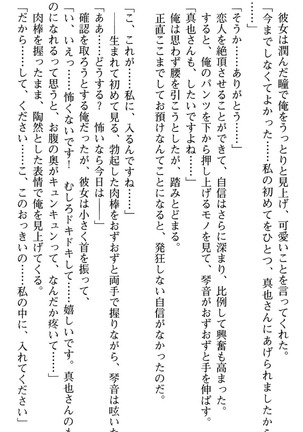 彼女は潤んだ瞳で俺をうっとり見上げ、可愛いことを言ってくれた。
「今までしなくてよかった……私の初めてをひとつ、真也さんにあげられましたから」
「そうか……ありがとう……」
恋人を絶頂させることができて、自信はさらに深まり、比例して興奮も高まった。
すると、俺のパンツを下から押し上げるモノを見て、琴音がおずおずと手を伸ばす。
「真也さんも、したいですよね……」
俺は思わず腰を引こうとしたが、踏みとどまる。
正直ここまでしてお預けなんてことになると、発狂しない自信がなかったのだ。
「こ、これが……私に、入るんですね……」
――生まれて初めて見る、勃起した肉棒をおずおずと両手で握りながら、琴音は呟いた。
「あ……どうする？　怖いなら今日は――」
確認を取ろうとする俺だったが、彼女は小さく首を振って、
「い、いえっ……怖くないです！　むしろドキドキして……嬉しいです。真也さんのも
のになれるって思うと、お腹の奥がキュンキュンって、なんだか疼いて……」
肉棒を握ったまま、陶然とした表情で俺を見上げてくる。
「だから……して、ください……こ、このおっきいの……私の中に、入れてください」